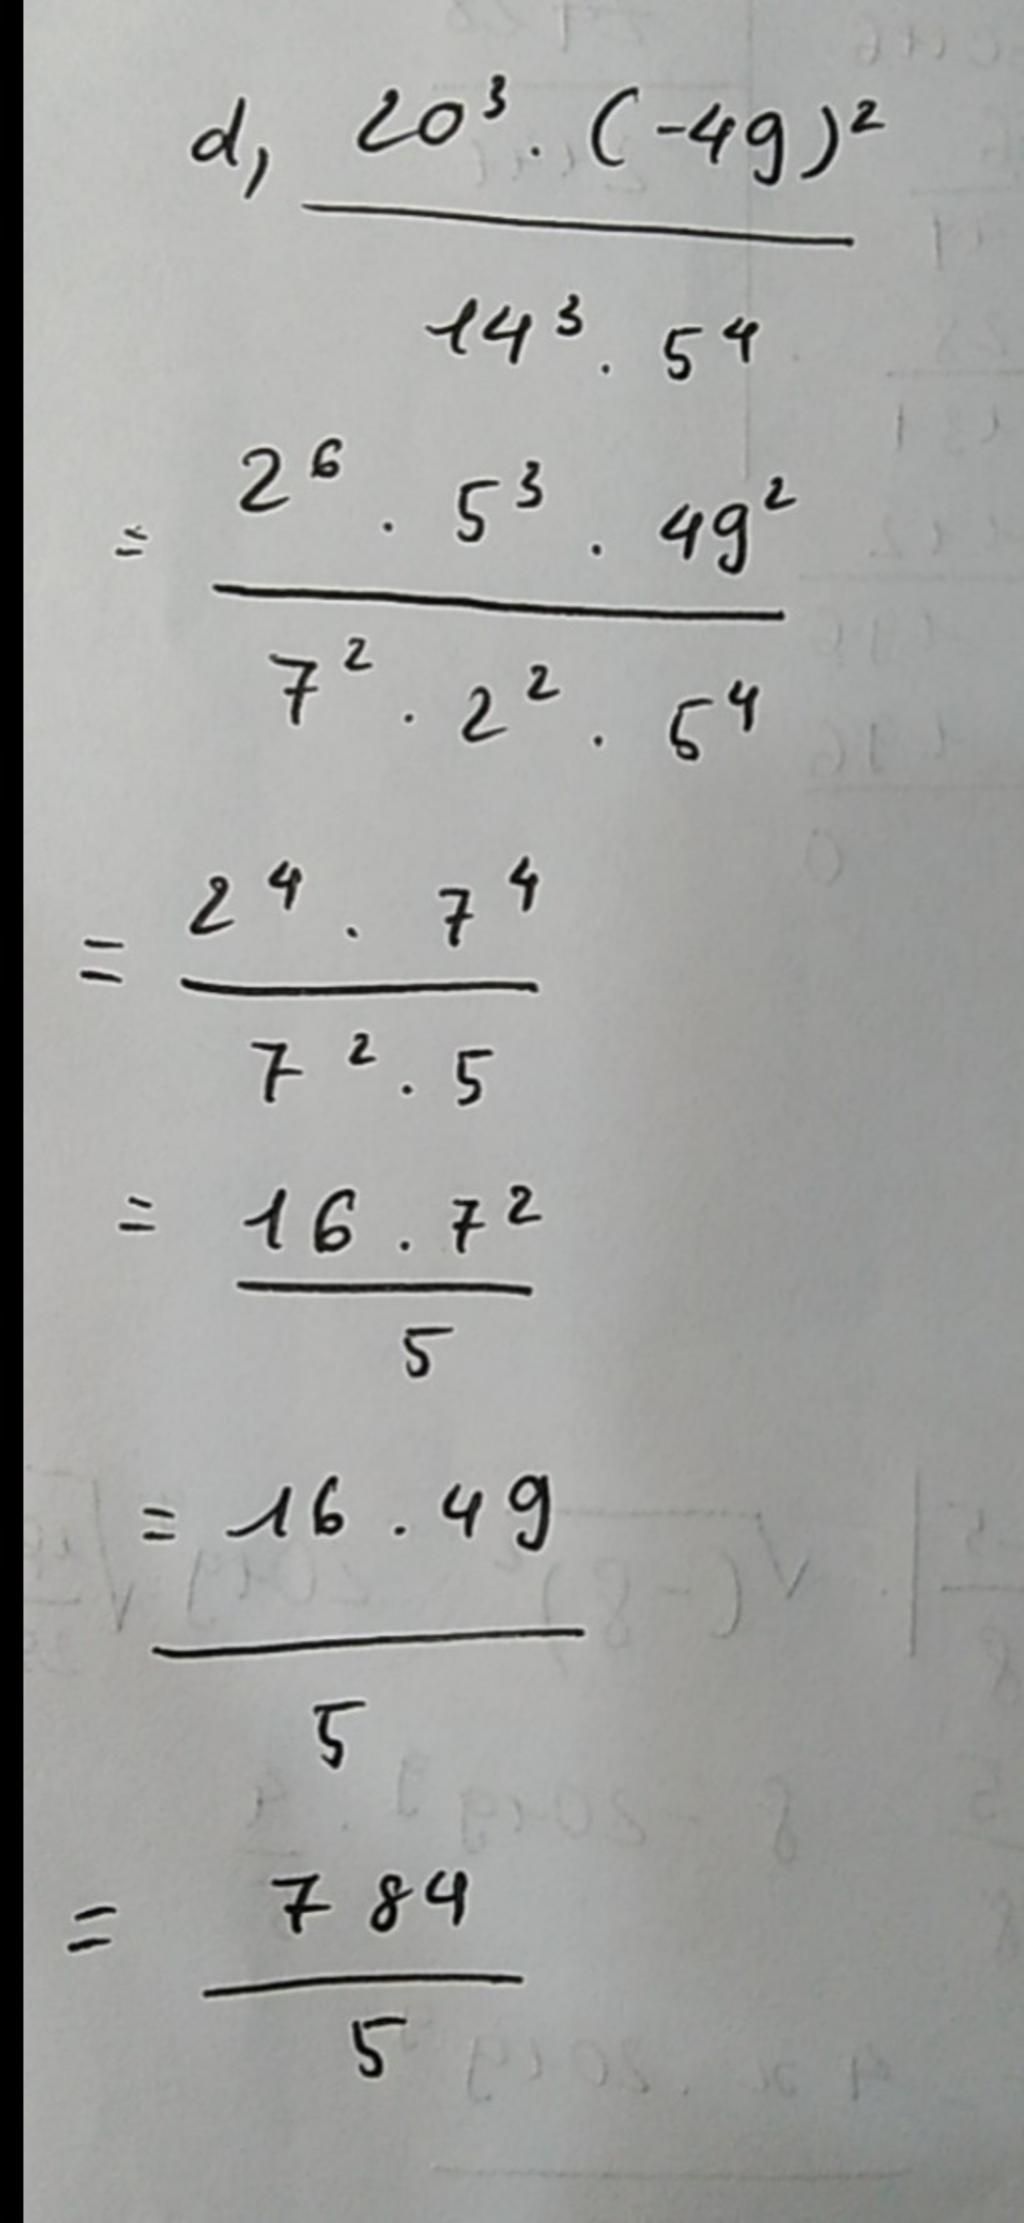 d, 20³ . (-49)²
14³ . 5⁴
= 2⁶ . 5³ . 49²
7² . 2² . 5⁴
= 2⁴ . 7⁴
7² . 5
= 16 . 7²
5
= 16 . 49
5
= 784
5